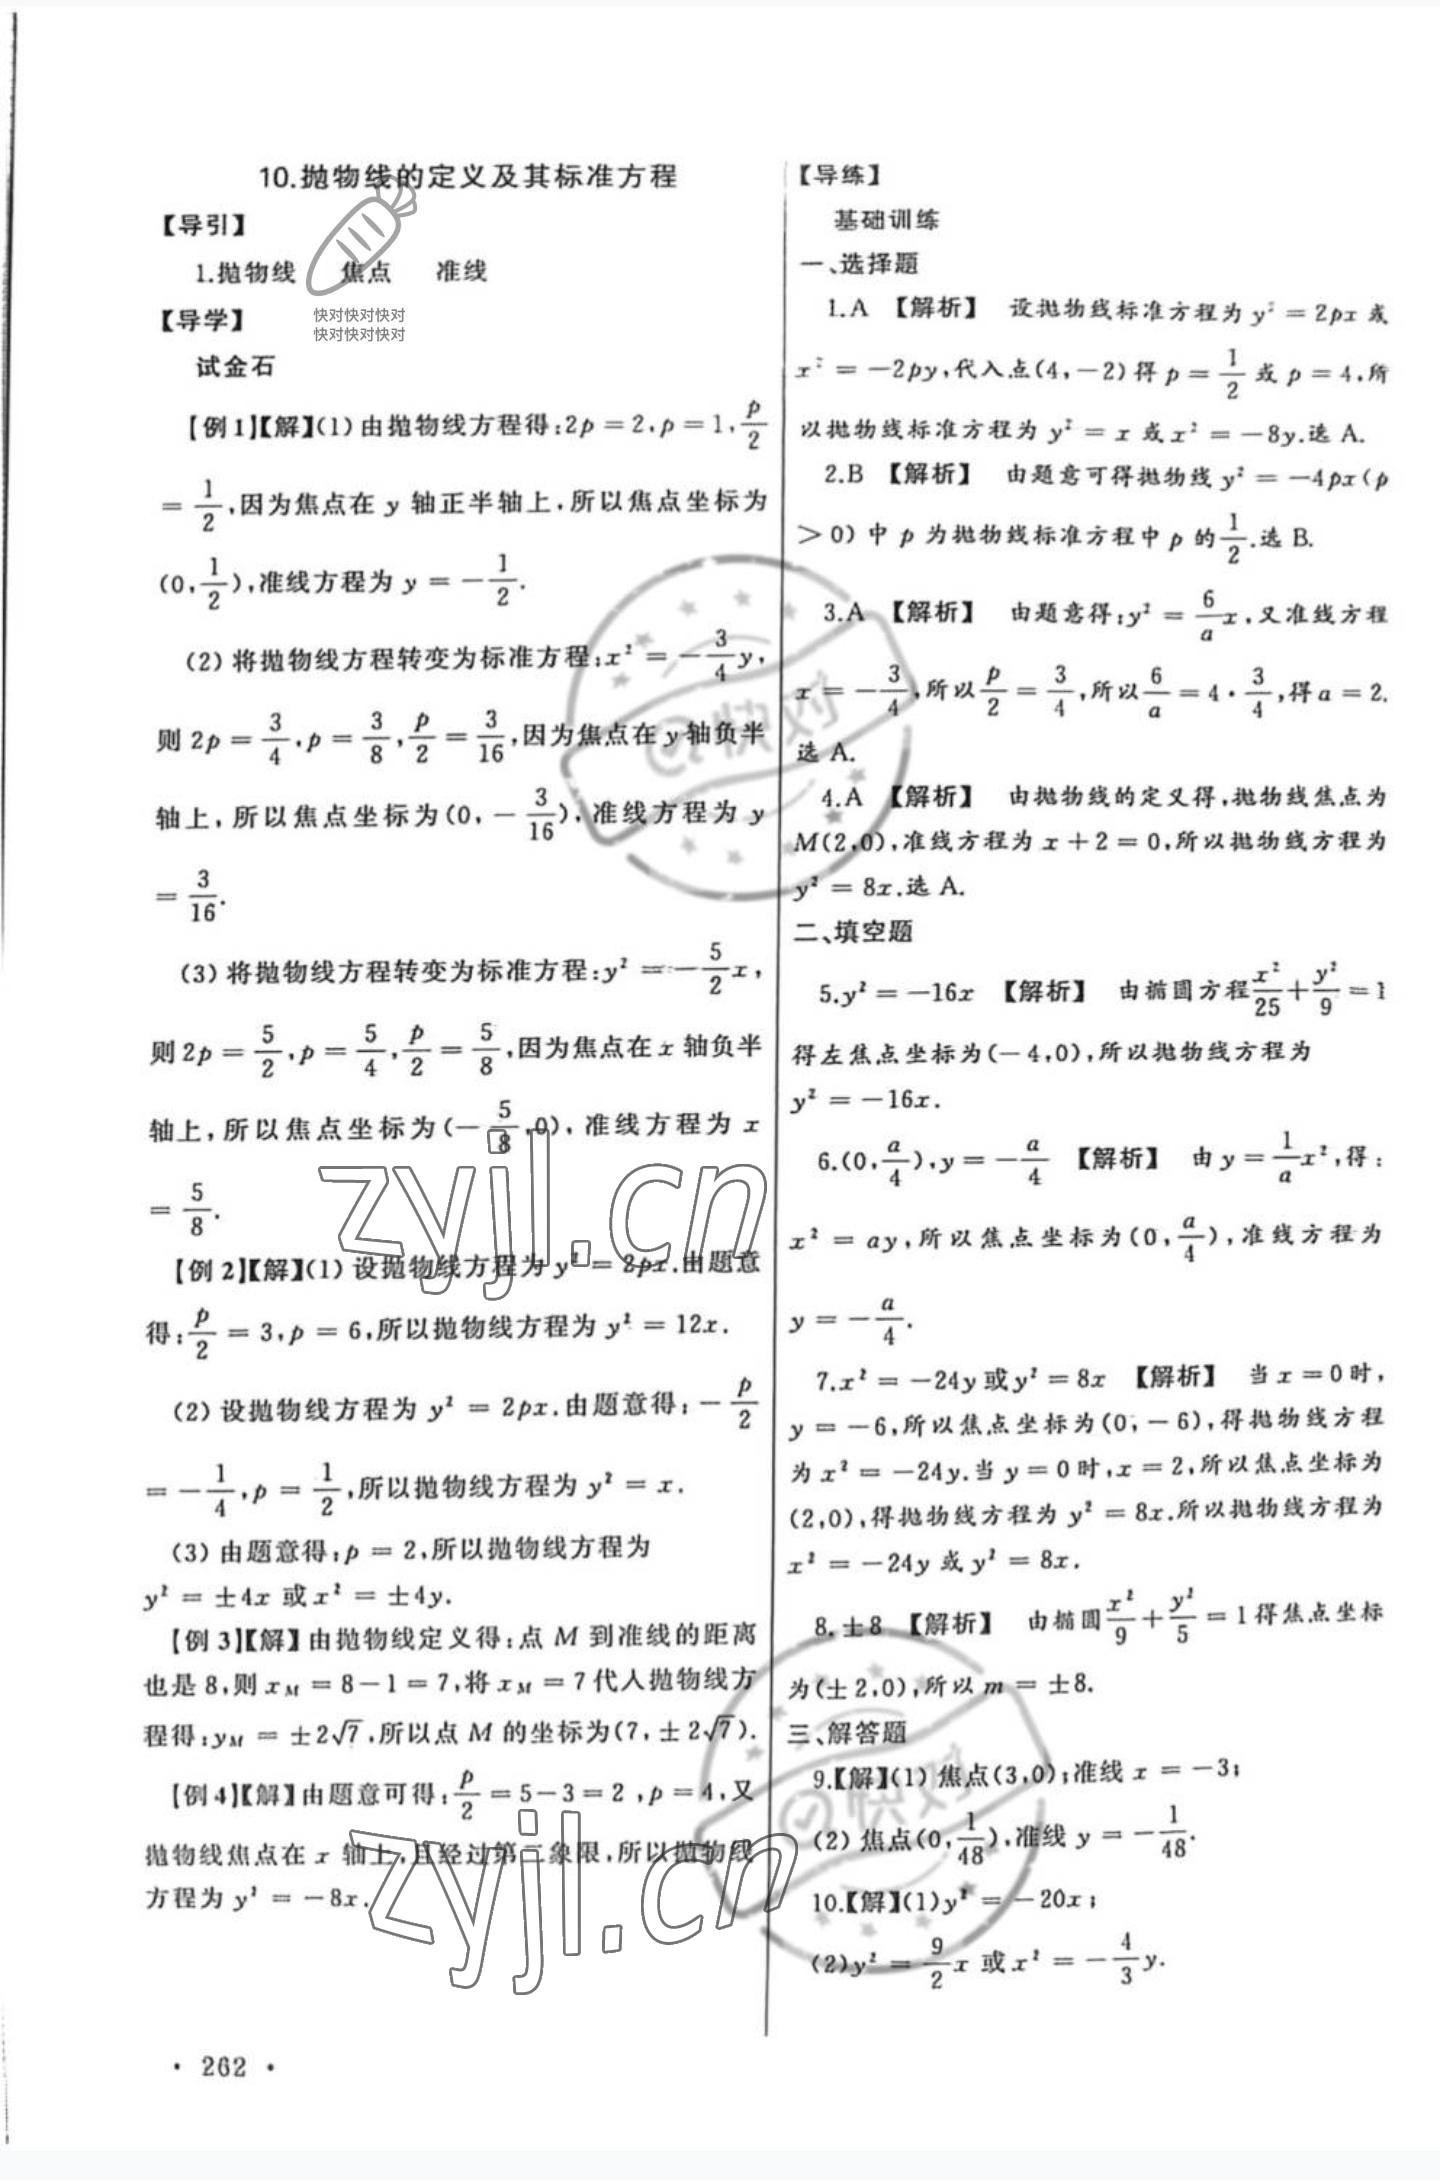 10.抛物线的定义及其标准方程
【导引】
1.抛物线 焦点 准线
【导学】
快对快对快对
快对快对快对
试金石
【例1】【解】(1)由抛物线方程得:2p=2,p=1,p/2
=1/2,因为焦点在 y 轴正半轴上,所以焦点坐标为
(0,1/2),准线方程为 y=-1/2.
(2)将抛物线方程转变为标准方程:x²=-3/4y,
则 2p=3/4,p=3/8,p/2=3/16,因为焦点在 y 轴负半
轴上,所以焦点坐标为(0,-3/16),准线方程为 y
=3/16.
(3)将抛物线方程转变为标准方程:y²=-5/2x,
则 2p=5/2,p=5/4,p/2=5/8,因为焦点在 x 轴负半
轴上,所以焦点坐标为(-5/8,0),准线方程为 x
=5/8.
【例2】【解】(1)设抛物线方程为 y²=2px.由题意
得:p/2=3,p=6,所以抛物线方程为 y²=12x.
(2)设抛物线方程为 y²=2px.由题意得:-p/2
=-1/4,p=1/2,所以抛物线方程为 y²=x.
(3)由题意得:p=2,所以抛物线方程为
y²=±4x 或 x²=±4y.
【例3】【解】由抛物线定义得:点 M 到准线的距离
也是 8,则 x_M=8-1=7,将 x_M=7 代人抛物线方
程得:y_M=±2√7,所以点 M 的坐标为(7,±2√7).
【例4】【解】由题意可得:p/2=5-3=2,p=4,又
抛物线焦点在 x 轴上,且经过第二象限,所以抛物线
方程为 y²=-8x.
· 262 ·
【导练】
基础训练
一、选择题
1.A 【解析】 设抛物线标准方程为 y²=2px 或
x²=-2py,代入点(4,-2)得 p=1/2 或 p=4,所
以抛物线标准方程为 y²=x 或 x²=-8y.选 A.
2.B 【解析】 由题意可得抛物线 y²=-4px(p
>0)中 p 为抛物线标准方程中 p 的1/2.选 B.
3.A 【解析】 由题意得:y²=6/a x,又准线方程
x=-3/4,所以p/2=3/4,所以6/a=4·3/4,得 a=2.
选 A.
4.A 【解析】 由抛物线的定义得,抛物线焦点为
M(2,0),准线方程为 x+2=0,所以抛物线方程为
y²=8x.选 A.
二、填空题
5.y²=-16x 【解析】 由椭圆方程x²/25+y²/9=1
得左焦点坐标为(-4,0),所以抛物线方程为
y²=-16x.
6.(0,a/4),y=-a/4 【解析】 由 y=1/a x²,得:
x²=ay,所以焦点坐标为(0,a/4),准线方程为
y=-a/4.
7.x²=-24y 或 y²=8x 【解析】 当 x=0 时,
y=-6,所以焦点坐标为(0,-6),得抛物线方程
为 x²=-24y.当 y=0 时,x=2,所以焦点坐标为
(2,0),得抛物线方程为 y²=8x.所以抛物线方程为
x²=-24y 或 y²=8x.
8.±8 【解析】 由椭圆x²/9+y²/5=1得焦点坐标
为(±2,0),所以 m=±8.
三、解答题
9.【解】(1)焦点(3,0);准线 x=-3;
(2)焦点(0,1/48),准线 y=-1/48.
10.【解】(1)y²=-20x;
(2)y²=9/2x 或 x²=-4/3y.
快对
zyjl.cn
快对
zyjl.cn